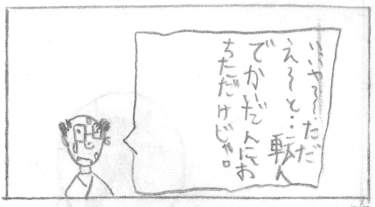 いや〜ただ
え〜と…転ん
でかいだんにお
ちただけじゃ。